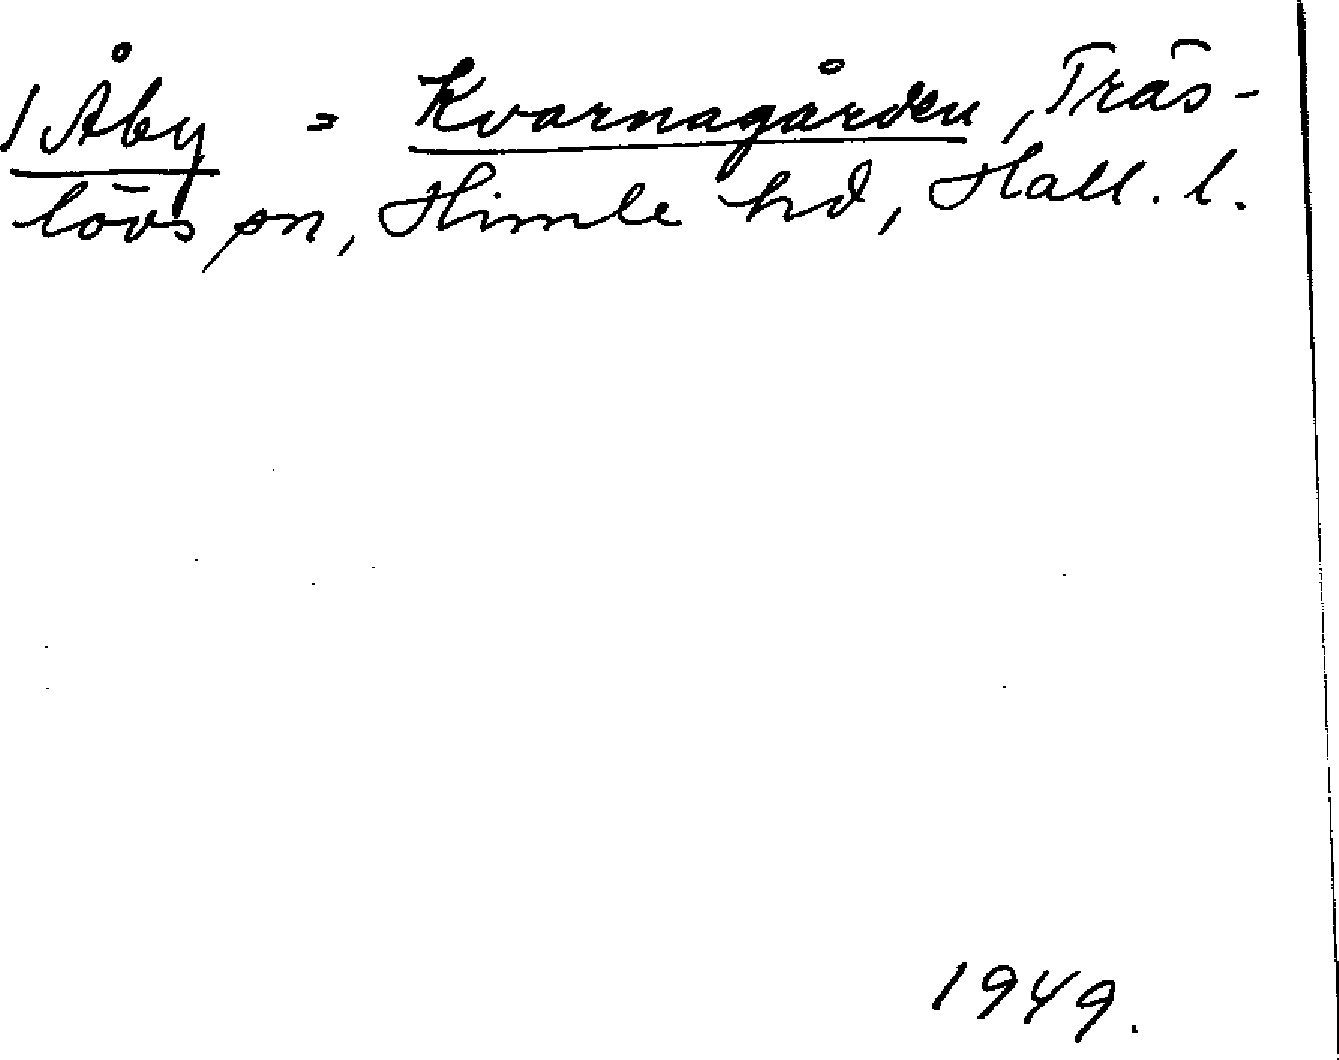 1 Åby = Kvarnagården, Träs-
lövs sn, Himle hd, Hall. l.
1949.